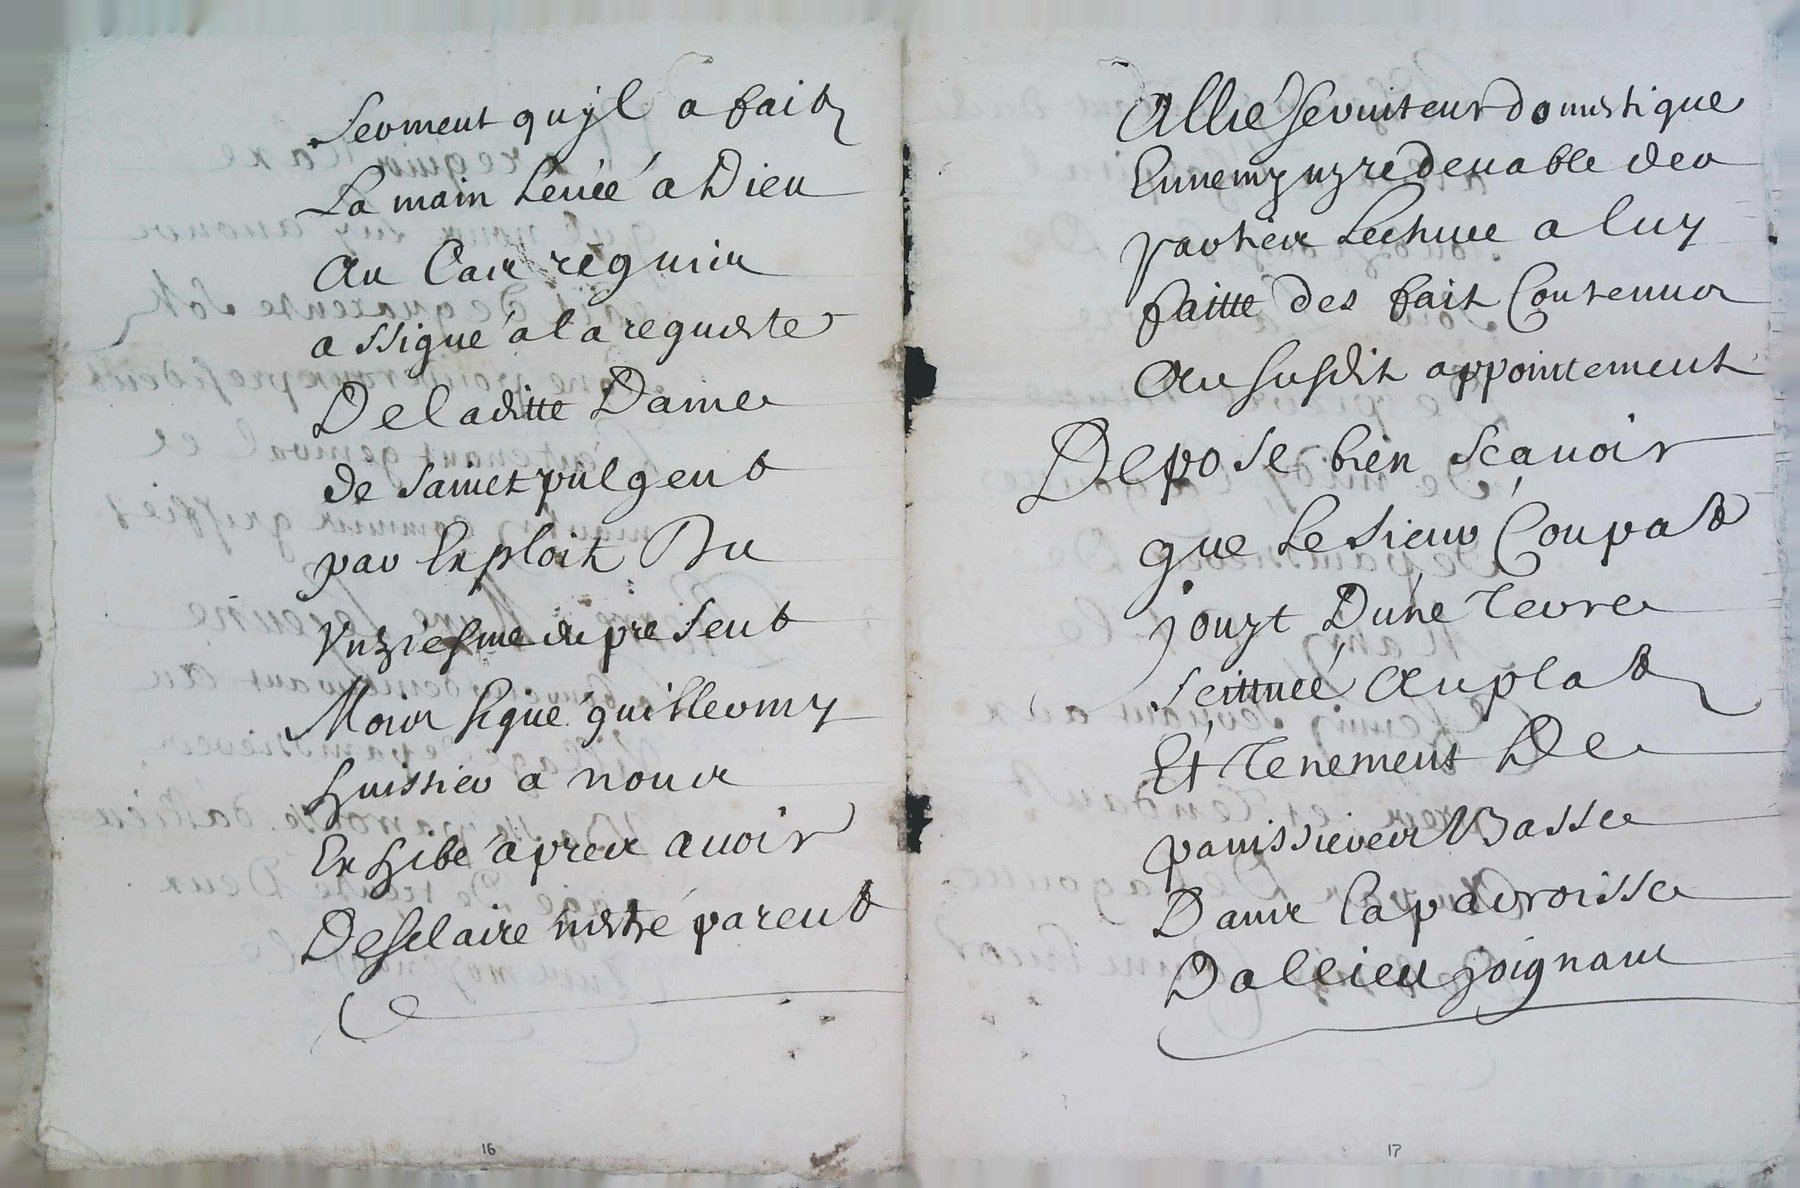 serment qu'jl a fait
La main levée a Dieu
Au Cas requis
assigné a la requeste
De laditte Dame
de sainct pulgent
par Exploit Du
Vnziesme du present
Mois signé guillermy
huissier a nous
Exhibé apres avoir
Desclaire n'estre parent
16
Allié serviteur domestique
Ennemy ny redevable des
parties Lecture a luy
faitte des fait Contenus
Au susdit appointement
Depose bien sçavoir
que Le sieur Coupat
jouyt D'une Terre
scittuée Au plat
Et Tenement De
panissieres Basse
Dans la parroisse
Dallieu joignant
17